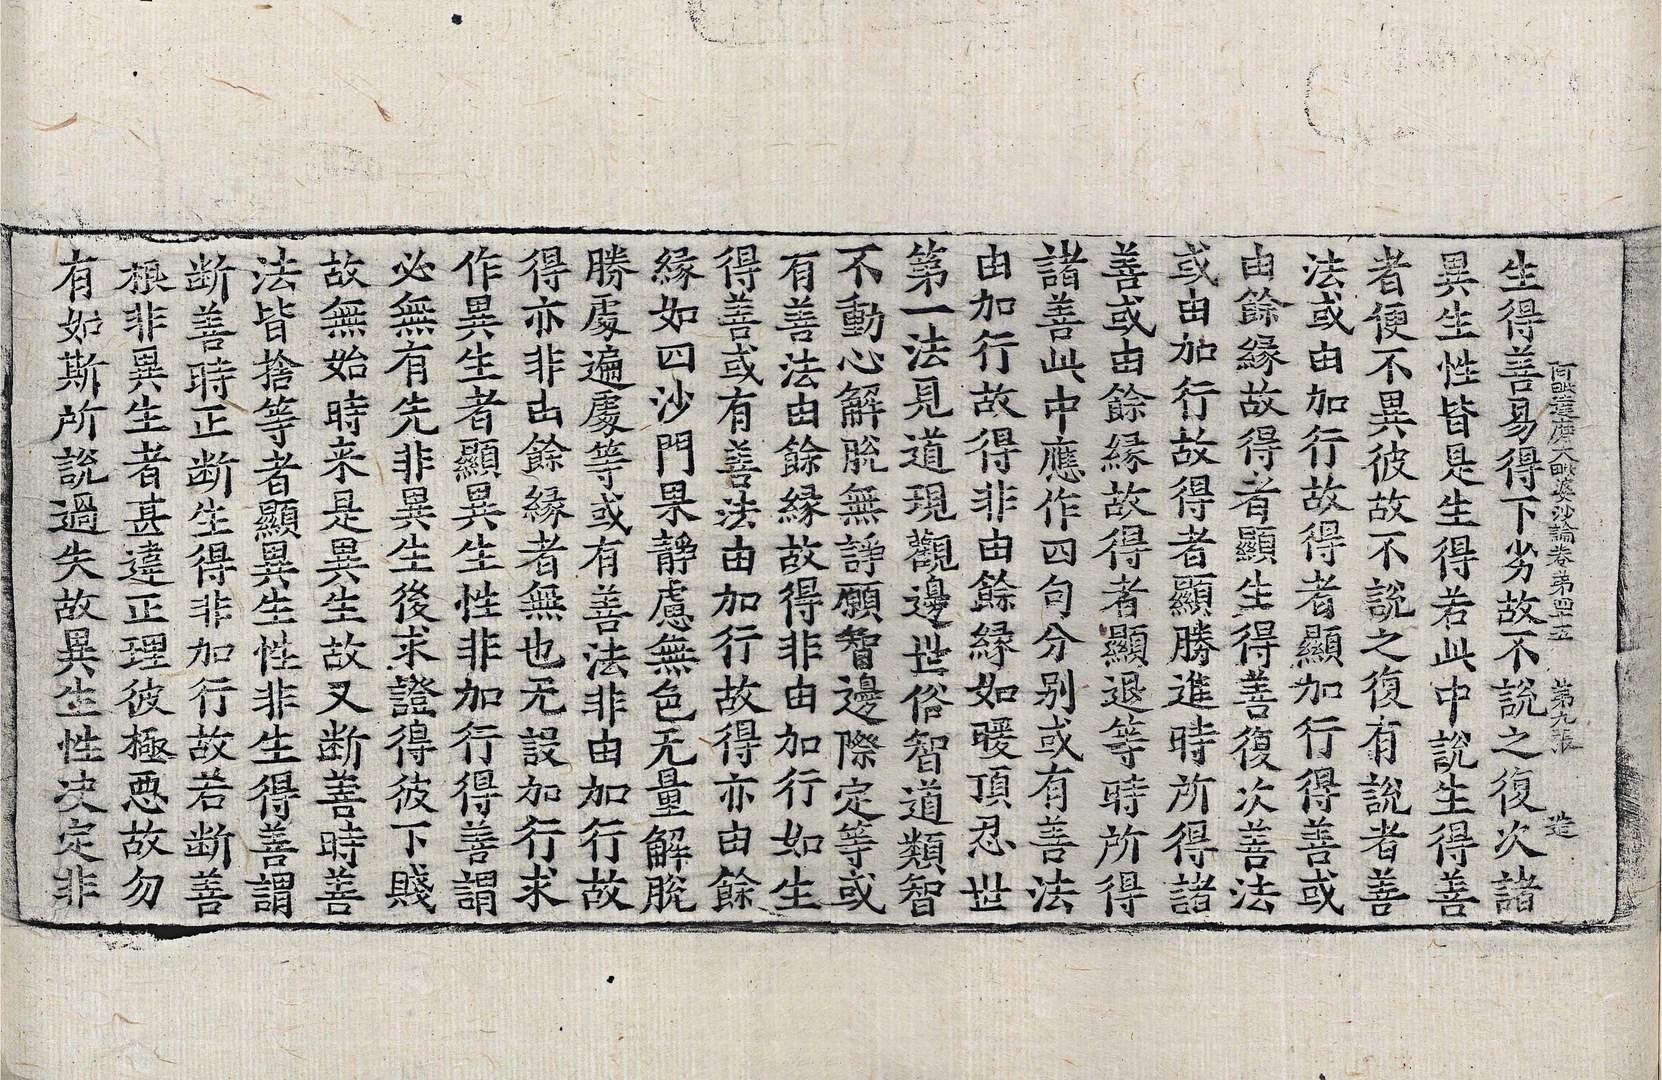 阿毗達磨大毗婆沙論卷第四十五　第九張　造
生得善易得下劣故不說之復次諸
異生性皆是生得若此中說生得善
者便不異彼故不說之復有說者善
法或由加行故得者顯加行得善或
由餘緣故得者顯生得得善復次善法
或由加行故得者顯勝進時所得諸
善或由餘緣故得者顯退等時所得
諸善此中應作四句分別或有善法
由加行故得非由餘緣如暖頂忍世
第一法見道現觀邊世俗智道類智
不動心解脫無諍願智邊際定等或
有善法由餘緣故得非由加行如生
得善或有善法由加行故得亦由餘
緣如四沙門果靜慮無色无量解脫
勝處遍處等或有善法非由加行故
得亦非由餘緣者無也无設加行求
作異生者顯異生性非加行得善謂
必無有先非異生後求證得彼下賤
故無始時来是異生故又断善時善
法皆捨等者顯異生性非生得善謂
断善時正断生得非加行故若断善
根非異生者甚違正理彼極惡故勿
有如斯所說過失故異生性決定非